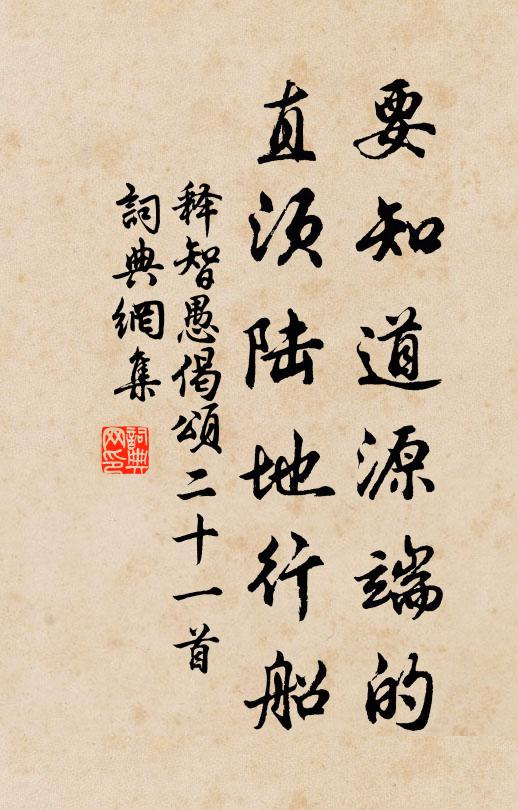 要知道源端的
直须陆地行船
释智愚偈頌二十一首
詞典網集
詞典
网印